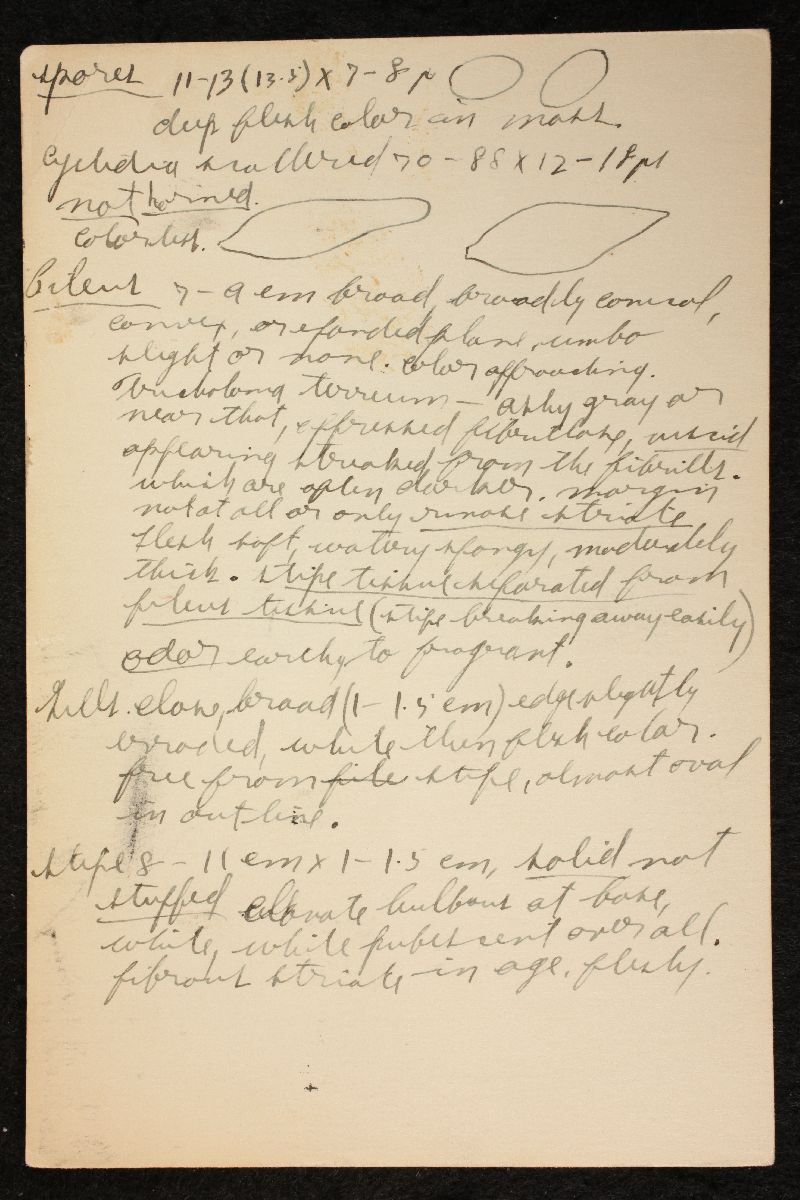 Spores 11-13 (13.5) x 7-8 µ
deep flesh color in mass.
Cystidia scattered 70-88 x 12-18 µ
not horned.
colorless.
Pileus 7-9 cm broad, broadly conical,
convex, or expanded plane, umbo
slight or none. color approaching.
Tricholoma terreum - ashy gray or
near that, appressed fibrillose, viscid
appearing streaked from the fibrills.
which are often darker. margin
not at all or only rimose striate
flesh soft, watery spongy, moderately
thick. stipe tissue separated from
pileus tissue (stipe breaking away easily)
odor earthy to fragrant.
Gills. close, broad (1-1.5 cm) edge slightly
erroded, white then flesh color.
free from pile stipe, almost oval
in outline.
Stipe 8-11 cm x 1-1.5 cm, solid not
stuffed clavate bulbous at base,
white, white pubescent over all.
fibrous striate in age. fleshy.